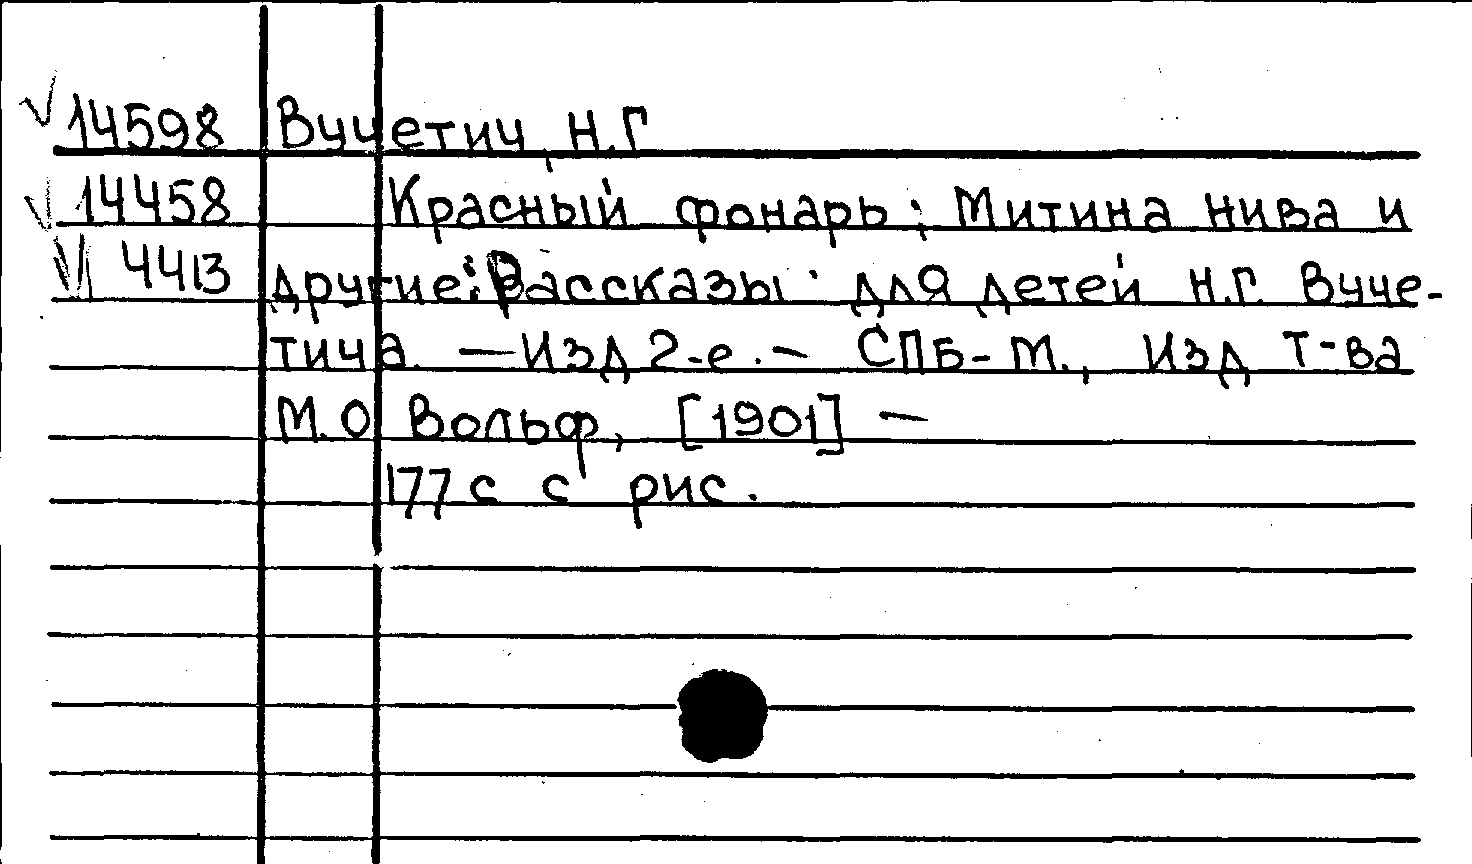 14598 Вучетич, Н.Г
14458 Красный фонарь; Митина нива и
4413 другие: Рассказы для детей Н.Г. Вуче-
тича. — Изд 2-е. — СПБ-М., Изд Т-ва
М.О Вольф, [1901] —
177 с с рис.